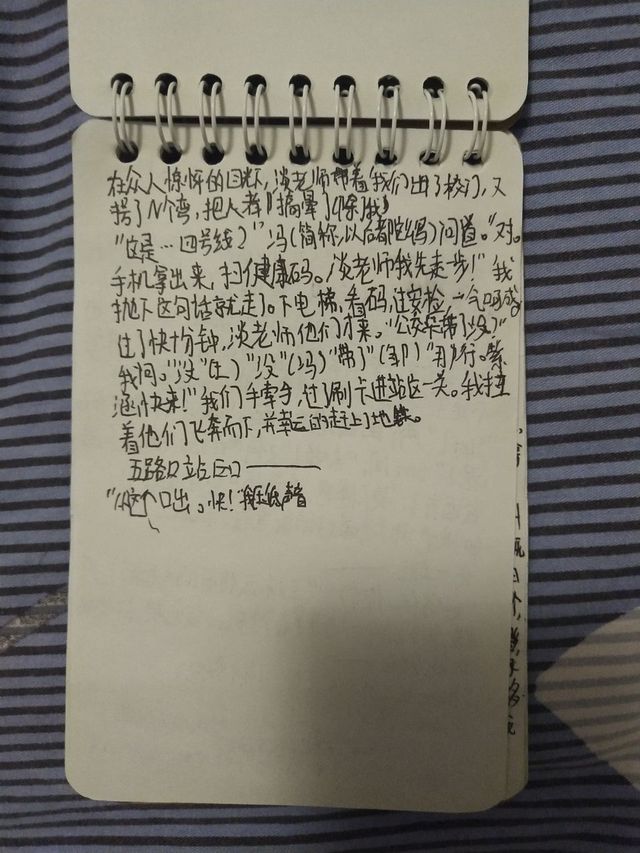 在众人惊怀的目光,淡老师带着我们出了校门,又
拐了N个弯,把人群搞晕了(除我)
"这是…四号线?"冯(简称,以后都是)问道。"对。
手机拿出来,扫健康码。淡老师我先走步!"我
抛下这句话就走了。下电梯,看码,过安检,一气呵成
过了快十分钟,淡老师他们才来。"公交卡带了没?"
我问。"没"(王)"没"(冯)"带了"(郭)"行。
快来!"我们手牵手,过了刷卡进站这一关。我拉
着他们飞奔而下,并幸运的赶上了地铁。
五路口站D口——
"从这个口出。快!"我压低声音